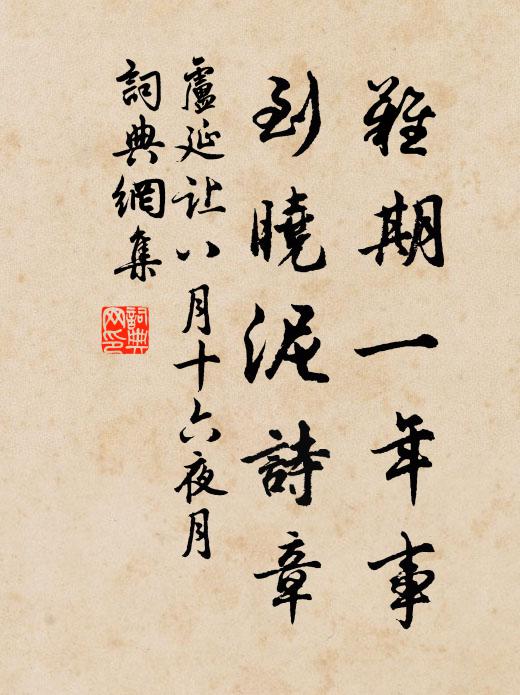 難期一年事
到曉泥詩章
盧延让八月十六夜月
詞典網集
詞典
网印